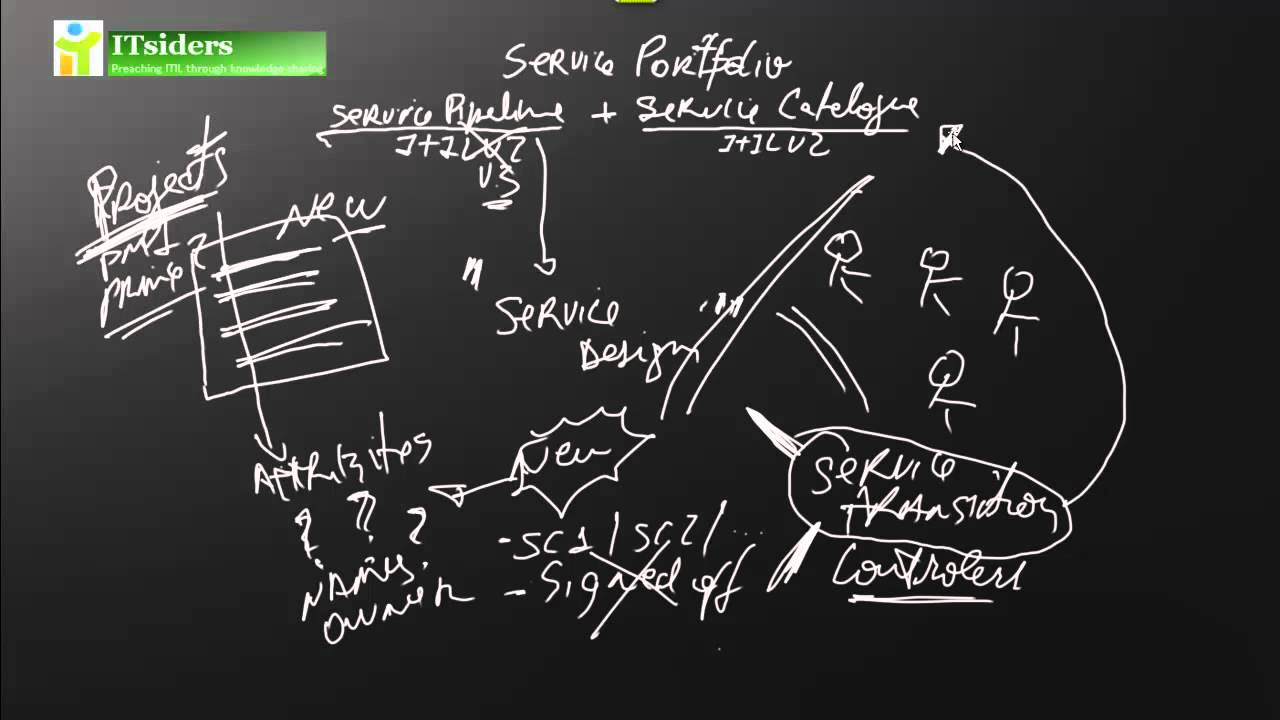 ITsiders
Preaching ITIL through knowledge sharing
Service Portfolio
Service Pipeline + Service Catalogue
ITIL V2
ITIL V2
V3
Projects
PMI
Prince 2
New
Service
Design
Attributes
? ? ?
Names,
Owner
New
- SC1 / SC2 / ...
- Signed off
Service
Transition
Controlers